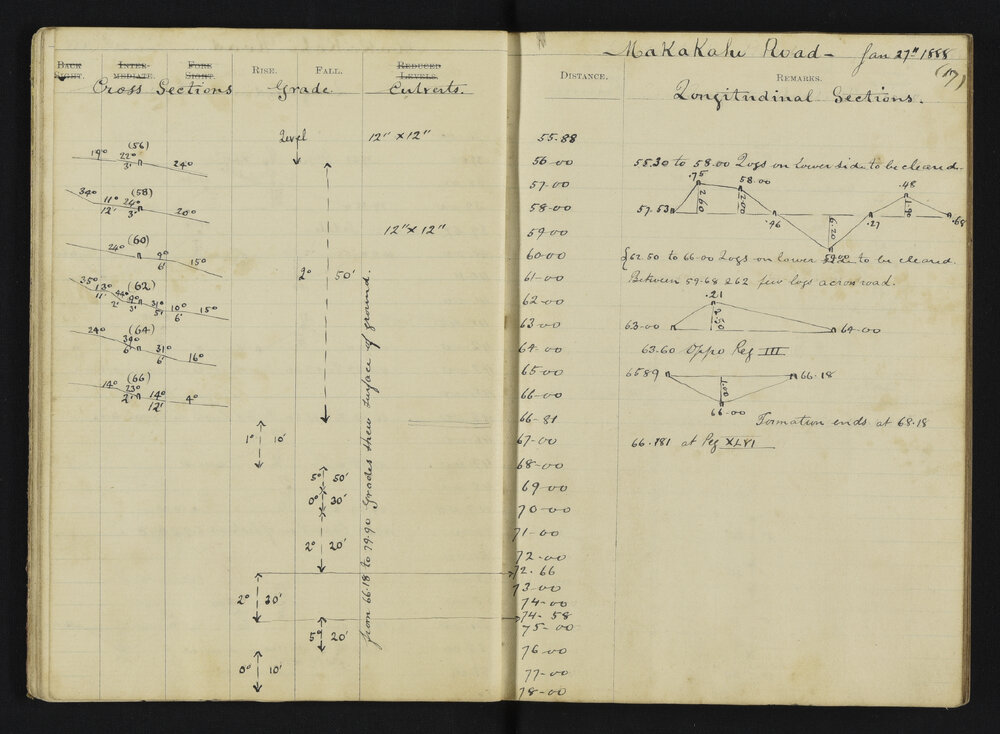 Makakahi Road - Jan 27th 1888
(17)
BACK SIGHT. INTER-MEDIATE. FORE SIGHT. RISE. FALL. REDUCED LEVELS.
Cross Sections Grade Culverts.
DISTANCE. REMARKS.
Longitudinal Sections.
Level 12" x 12"
(56)
19° 22° 24°
3'
(58)
34° 11° 24° 20°
12' 3'
12" x 12"
(60)
24° 9° 15°
6'
2° 50'
(62)
35° 13° 44° 9° 31° 10° 15°
11' 2' 3' 5' 6'
(64)
24° 39° 31° 16°
6' 6'
(66)
14° 23° 14° 4°
2' 12'
1° 10'
5° 50'
0° 30'
2° 20'
2° 30'
5° 20'
0° 10'
from 66.18 to 79.90 Grades shew surface of ground.
55.88
56-00
57-00
58-00
59-00
60-00
61-00
62-00
63-00
64-00
65-00
66-00
66-81
67-00
68-00
69-00
70-00
71-00
72-00
72.66
73-00
74-00
74-58
75-00
76-00
77-00
78-00
55.30 to 58.00 Logs on Lower side to be cleared.
.75 58.00 .48
57.53 2.60 2.00 1.90 .68
.96 6.20 .27
59.00
{62.50 to 66.00 Logs on lower to be cleared.
Between 59.68 & 62 few logs across road.
.21
63-00 2.50 64-00
63.60 Oppo Peg III
65 89 66.18
1.00
66-00
Formation ends at 68.18
66.181 at Peg XLVI